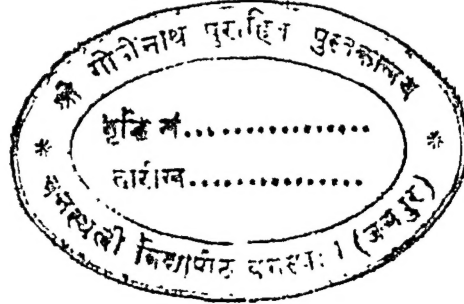 श्री गोपीनाथ पुरोहित पुस्तकालय
वृद्धि सं................
तारीख................
वनस्थली विद्यापीठ (जयपुर)